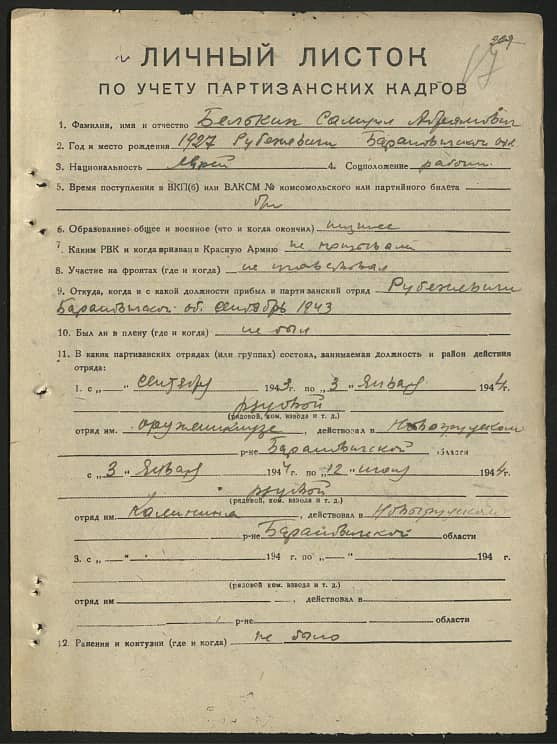 209
ЛИЧНЫЙ ЛИСТОК
ПО УЧЕТУ ПАРТИЗАНСКИХ КАДРОВ
1. Фамилия, имя и отчество Белькин Самуил Абрамович
2. Год и место рождения 1927 Рубежевичи Барановичской обл.
3. Национальность еврей 4. Соцположение рабочий
5. Время поступления в ВКП(б) или ВЛКСМ № комсомольского или партийного билета
б/п
6. Образование: общее и военное (что и когда окончил) низшее
7. Каким РВК и когда призван в Красную Армию не призывался
8. Участие на фронтах (где и когда) не участвовал
9. Откуда, когда и с какой должности прибыл в партизанский отряд Рубежевичи
Барановичск. об. сентябрь 1943
10. Был ли в плену (где и когда) не был
11. В каких партизанских отрядах (или группах) состоял, занимаемая должность и район действия
отряда:
1. с „ “ сентября 1943 г. по „3 января 1944 г.
рядовой
(рядовой, ком. взвода и т. д.)
отряд им. Орджоникидзе, действовал в Новогрудском
р-не Барановичской области
с „3 января 1944 г. по „12 июля 1944 г.
рядовой
(рядовой, ком. взвода и т. д.)
отряд им. Калинина, действовал в Новогрудском
р-не Барановичской области
3. с „ “ 194 г. по „ “ 194 г.
(рядовой ком. взвода и т. д.)
отряд им , действовал в
р-не области
12. Ранения и контузии (где и когда) не было